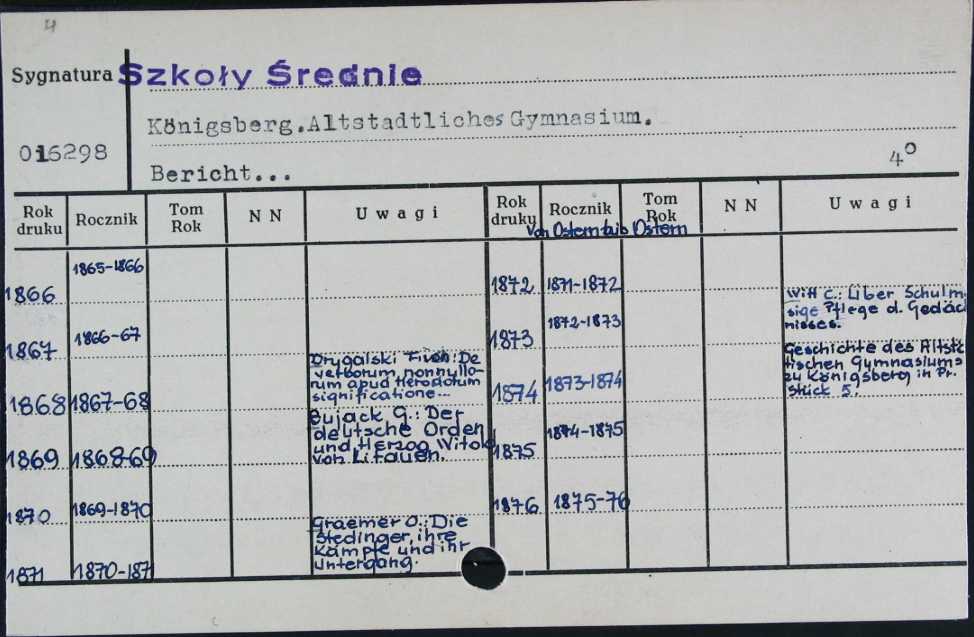 4
Sygnatura Szkoły Średnie
Königsberg.Altstadtliches Gymnasium.
016298
4°
Bericht...
Rok druku Rocznik Tom Rok N N Uwagi Rok druku Rocznik Tom Rok N N Uwagi
Von Ostern bis Ostern
1866 1865-1866
1867 1866-67
1868 1867-68 Drygalski : De
verborum nonnullo-
rum apud Herodotum
significatione...
1869 1868-69 Bujack G.: Der
deutsche Orden
und Herzog Witold
von Litauen.
1870 1869-1870
1871 1870-187 Graemer O.: Die
Stedinger, ihre
Kämpfe und ihr
Untergang.
1872 1871-1872
1873 1872-1873 Witt C.: Über Schulm
sige Pflege d. Gedäc
nisses.
1874 1873-1874 Geschichte des Altstä
tischen Gymnasiums
zu Königsberg in Pr.
Stück 5.
1875 1874-1875
1876 1875-76